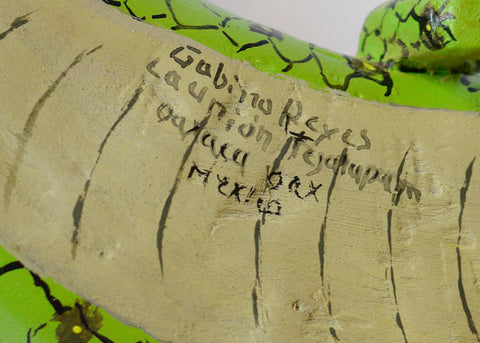 Gabino Reyes
La unión Tejalapam
Oaxaca OAX
Mexico